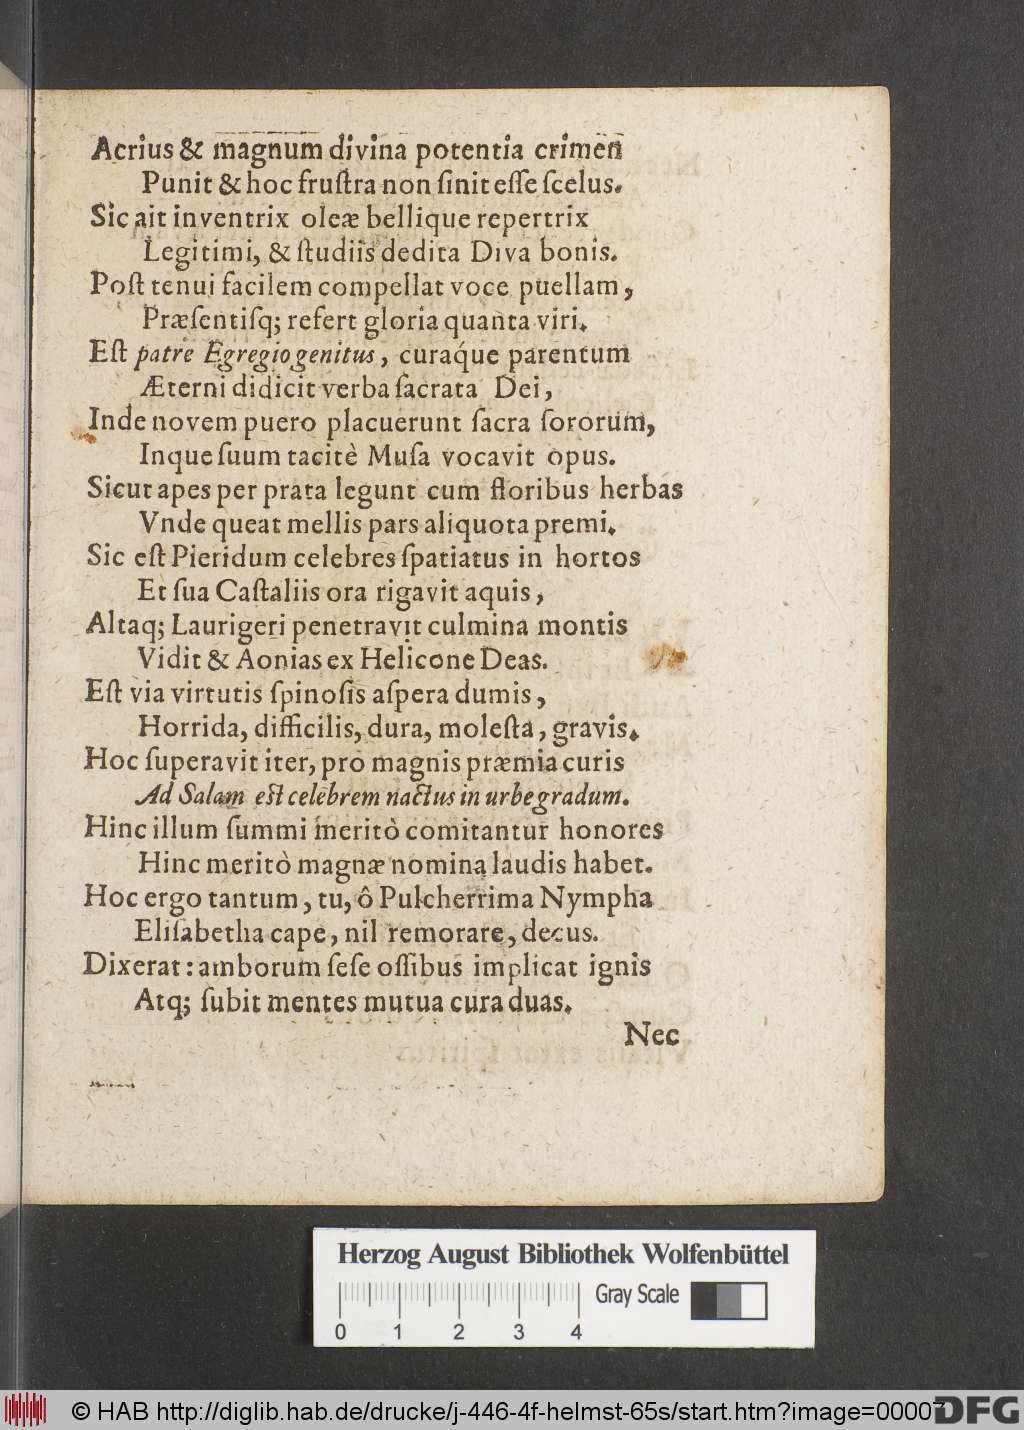 Acrius & magnum divina potentia crimen
Punit & hoc frustra non ſinit eſſe ſcelus.
Sic ait inventrix oleæ bellique repertrix
Legitimi, & ſtudiis dedita Diva bonis.
Poſt tenui facilem compellat voce puellam,
Præſentiſq; refert gloria quanta viri.
Eſt patre Egregio genitus, curaq́ue parentum
Æterni didicit verba ſacrata Dei,
Inde novem puero placuerunt ſacra ſororum,
Inque ſuum tacitè Muſa vocavit opus.
Sicut apes per prata legunt cum floribus herbas
Vnde queat mellis pars aliquota premi.
Sic eſt Pieridum celebres ſpatiatus in hortos
Et ſua Caſtaliis ora rigavit aquis,
Altaq; Laurigeri penetravit culmina montis
Vidit & Aonias ex Helicone Deas.
Eſt via virtutis ſpinoſis aſpera dumis,
Horrida, difficilis, dura, moleſta, gravis.
Hoc ſuperavit iter, pro magnis præmia curis
Ad Salam eſt celebrem nactus in urbe gradum.
Hinc illum ſummi meritò comitantur honores
Hinc meritò magnæ nomina laudis habet.
Hoc ergo tantum, tu, ô Pulcherrima Nympha
Eliſabetha cape, nil remorare, decus.
Dixerat: amborum ſeſe oſſibus implicat ignis
Atq; ſubit mentes mutua cura duas.
Nec
Herzog August Bibliothek Wolfenbüttel
Gray Scale
0 1 2 3 4
© HAB http://diglib.hab.de/drucke/j-446-4f-helmst-65s/start.htm?image=00007
DFG